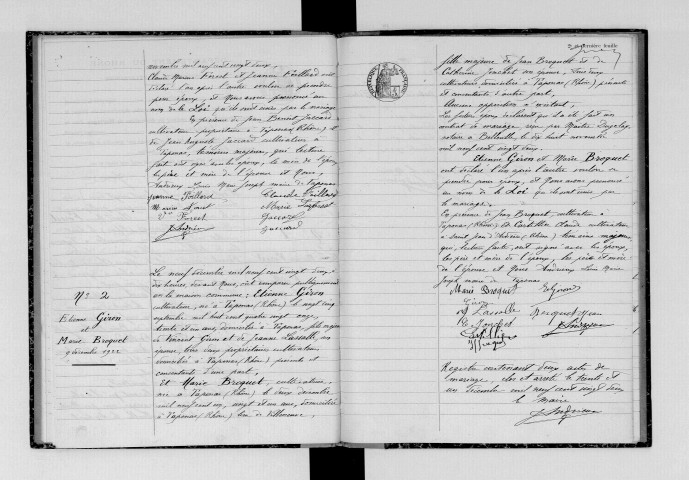 novembre mil neuf cent vingt deux.
Claude Marius Forest et Jeanne Poillard ont
déclaré l'un après l'autre vouloir se prendre
pour époux et Nous avons prononcé au
nom de la Loi qu'ils sont unis par le mariage
En présence de Jean Benoit Jaccard
cultivateur propriétaire à Taponas (Rhône) et
de Jean Auguste Jaccard cultivateur à
Taponas, témoins majeurs, qui, lecture
faite ont signé avec les époux, la mère de l'époux
le père et mère de l'épouse et Nous,
Maire de Taponas
Marius Forest
Vve Forest
Jaccard
Nº 2
Etienne Giron
et
Marie Broquet
9 décembre 1922
Le neuf décembre mil neuf cent vingt deux
dix heures, devant Nous, ont comparu publiquement
en la maison commune : Etienne Giron
cultivateur, né à Taponas (Rhône) le vingt cinq
septembre mil huit cent quatre vingt onze,
trente et un ans, domicilié à Taponas, fils majeur
de Vincent Giron et de Jeanne Lassalle, son
épouse, tous deux propriétaires cultivateurs
domiciliés à Taponas (Rhône) présents et
consentants d'une part,
Et Marie Broquet, cultivatrice,
née à Taponas (Rhône) le deux décembre
mil neuf cent un, vingt et un ans, domiciliée
à Taponas (Rhône)
2e et dernière feuille
fille majeure de Jean Broquet et de
Catherine son épouse, tous deux
cultivateurs domiciliés à Taponas (Rhône) présents
et consentants d'autre part,
Aucune opposition n'existant.
Les futurs époux déclarent qu'il a été fait un
contrat de mariage reçu par Maître
notaire à Belleville le dix huit novembre
mil neuf cent vingt deux.
Etienne Giron et Marie Broquet
ont déclaré l'un après l'autre vouloir se
prendre pour époux, et Nous avons prononcé
au nom de la Loi qu'ils sont unis par
le mariage.
En présence de Jean Broquet, cultivateur à
Taponas (Rhône) et Claude cultivateur
à Saint Jean d'Ardières (Rhône) témoins majeurs
qui, lecture faite, ont signé avec les époux,
les père et mère de l'époux, les père et mère
de l'épouse et Nous
maire de Taponas
Marie Broquet
Giron
Lassalle
Broquet Jean
Registre contenant deux actes de
mariage, clos et arrêté le trente et
un Décembre mil neuf cent vingt deux
le maire